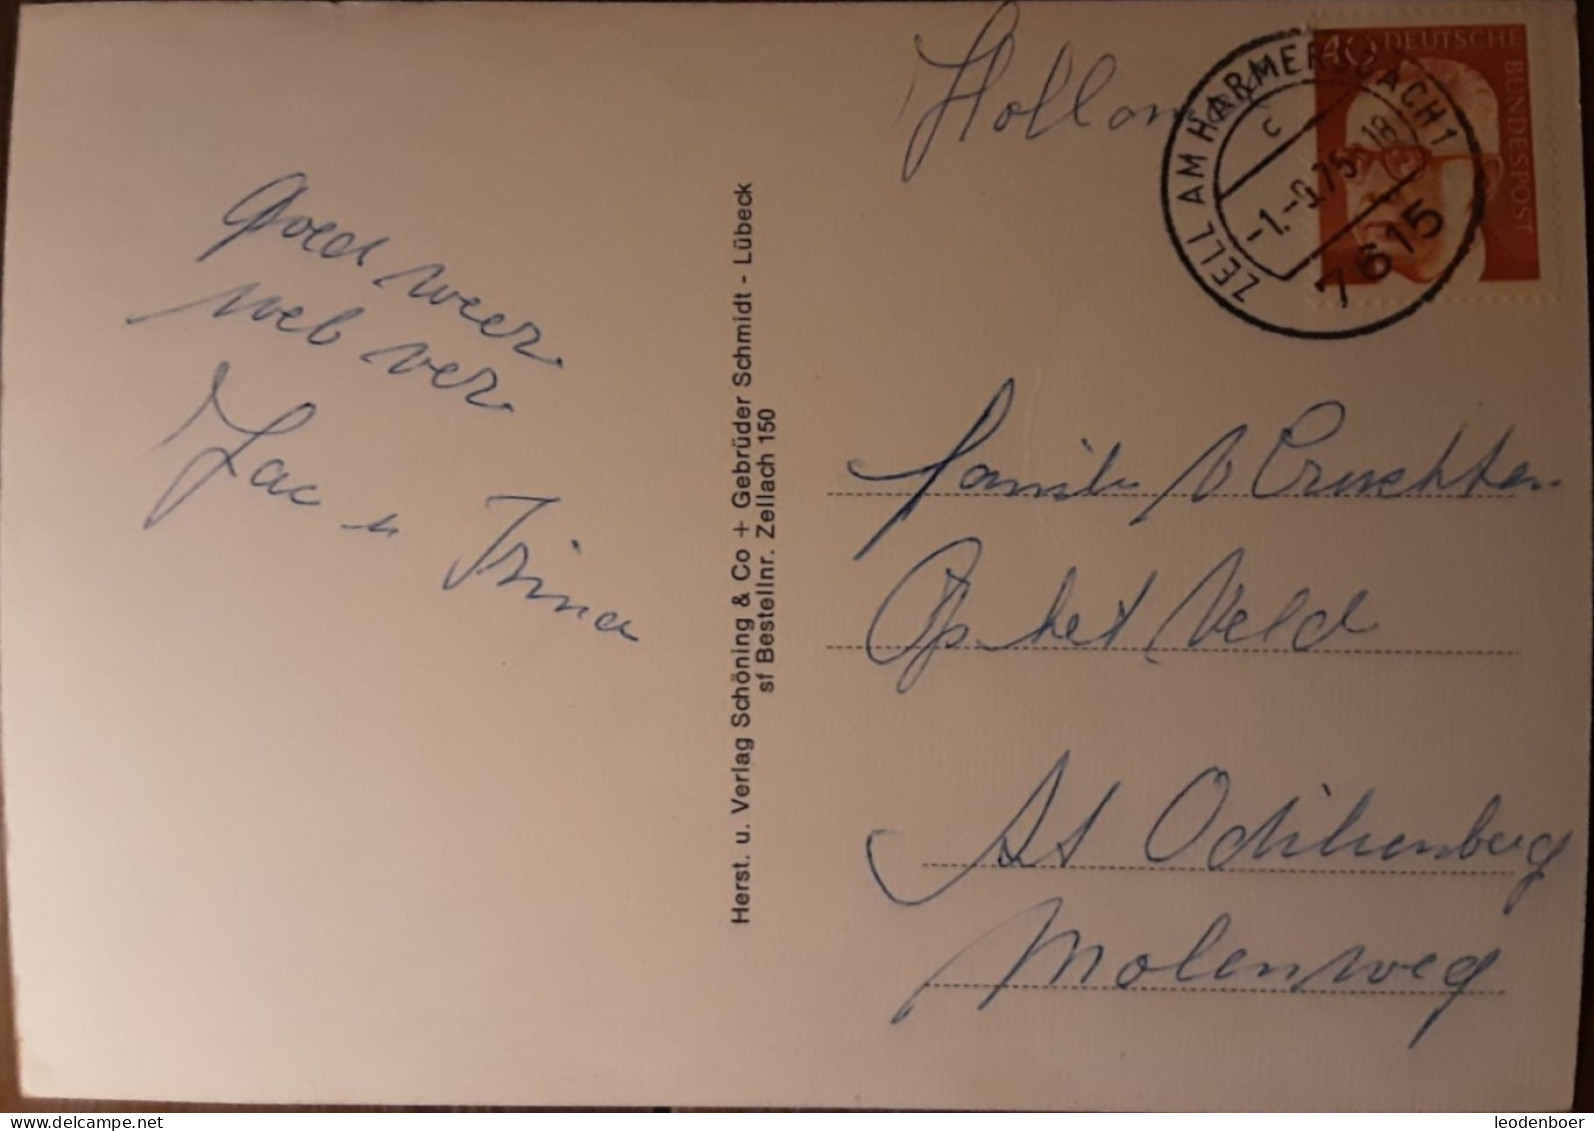 Goed weer
web ver
Jac u Trina
Herst. u. Verlag Schöning & Co + Gebrüder Schmidt - Lübeck
sf Bestellnr. Zellach 150
Holland
40 DEUTSCHE BUNDESPOST
ZELL AM HARMERSBACH 1
c
-1.-9.75-18
7615
familie v Cruchten
Op het Veld
St Odiliënberg
Molenweg
leodenboer